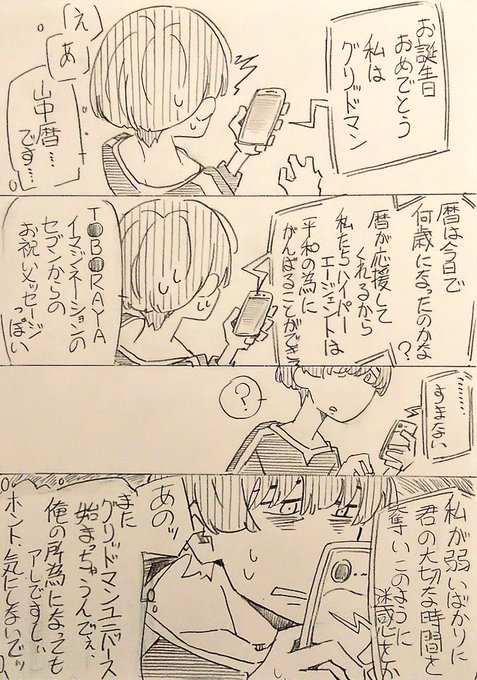 お誕生日
おめでとう
私は
グリッドマン
「え」
あ
山中暦
です…
暦は今日で
何歳になったのかな
?
暦が応援して
くれるから
私たちハイパー
エージェントは
平和の為に
がんばることができ
T●B●RAYA
イマジネーションの
セブンからの
お祝いメッセージ
っぽい
すまない
?
私が弱いばかりに
君の大切な時間を
奪いこのように
迷惑をか
あのッ
またに
グリッドマンユニバース
始まっちゃうんでぇ、
俺の所為になっても
アレですしぃ
ホント、気にしないでッ